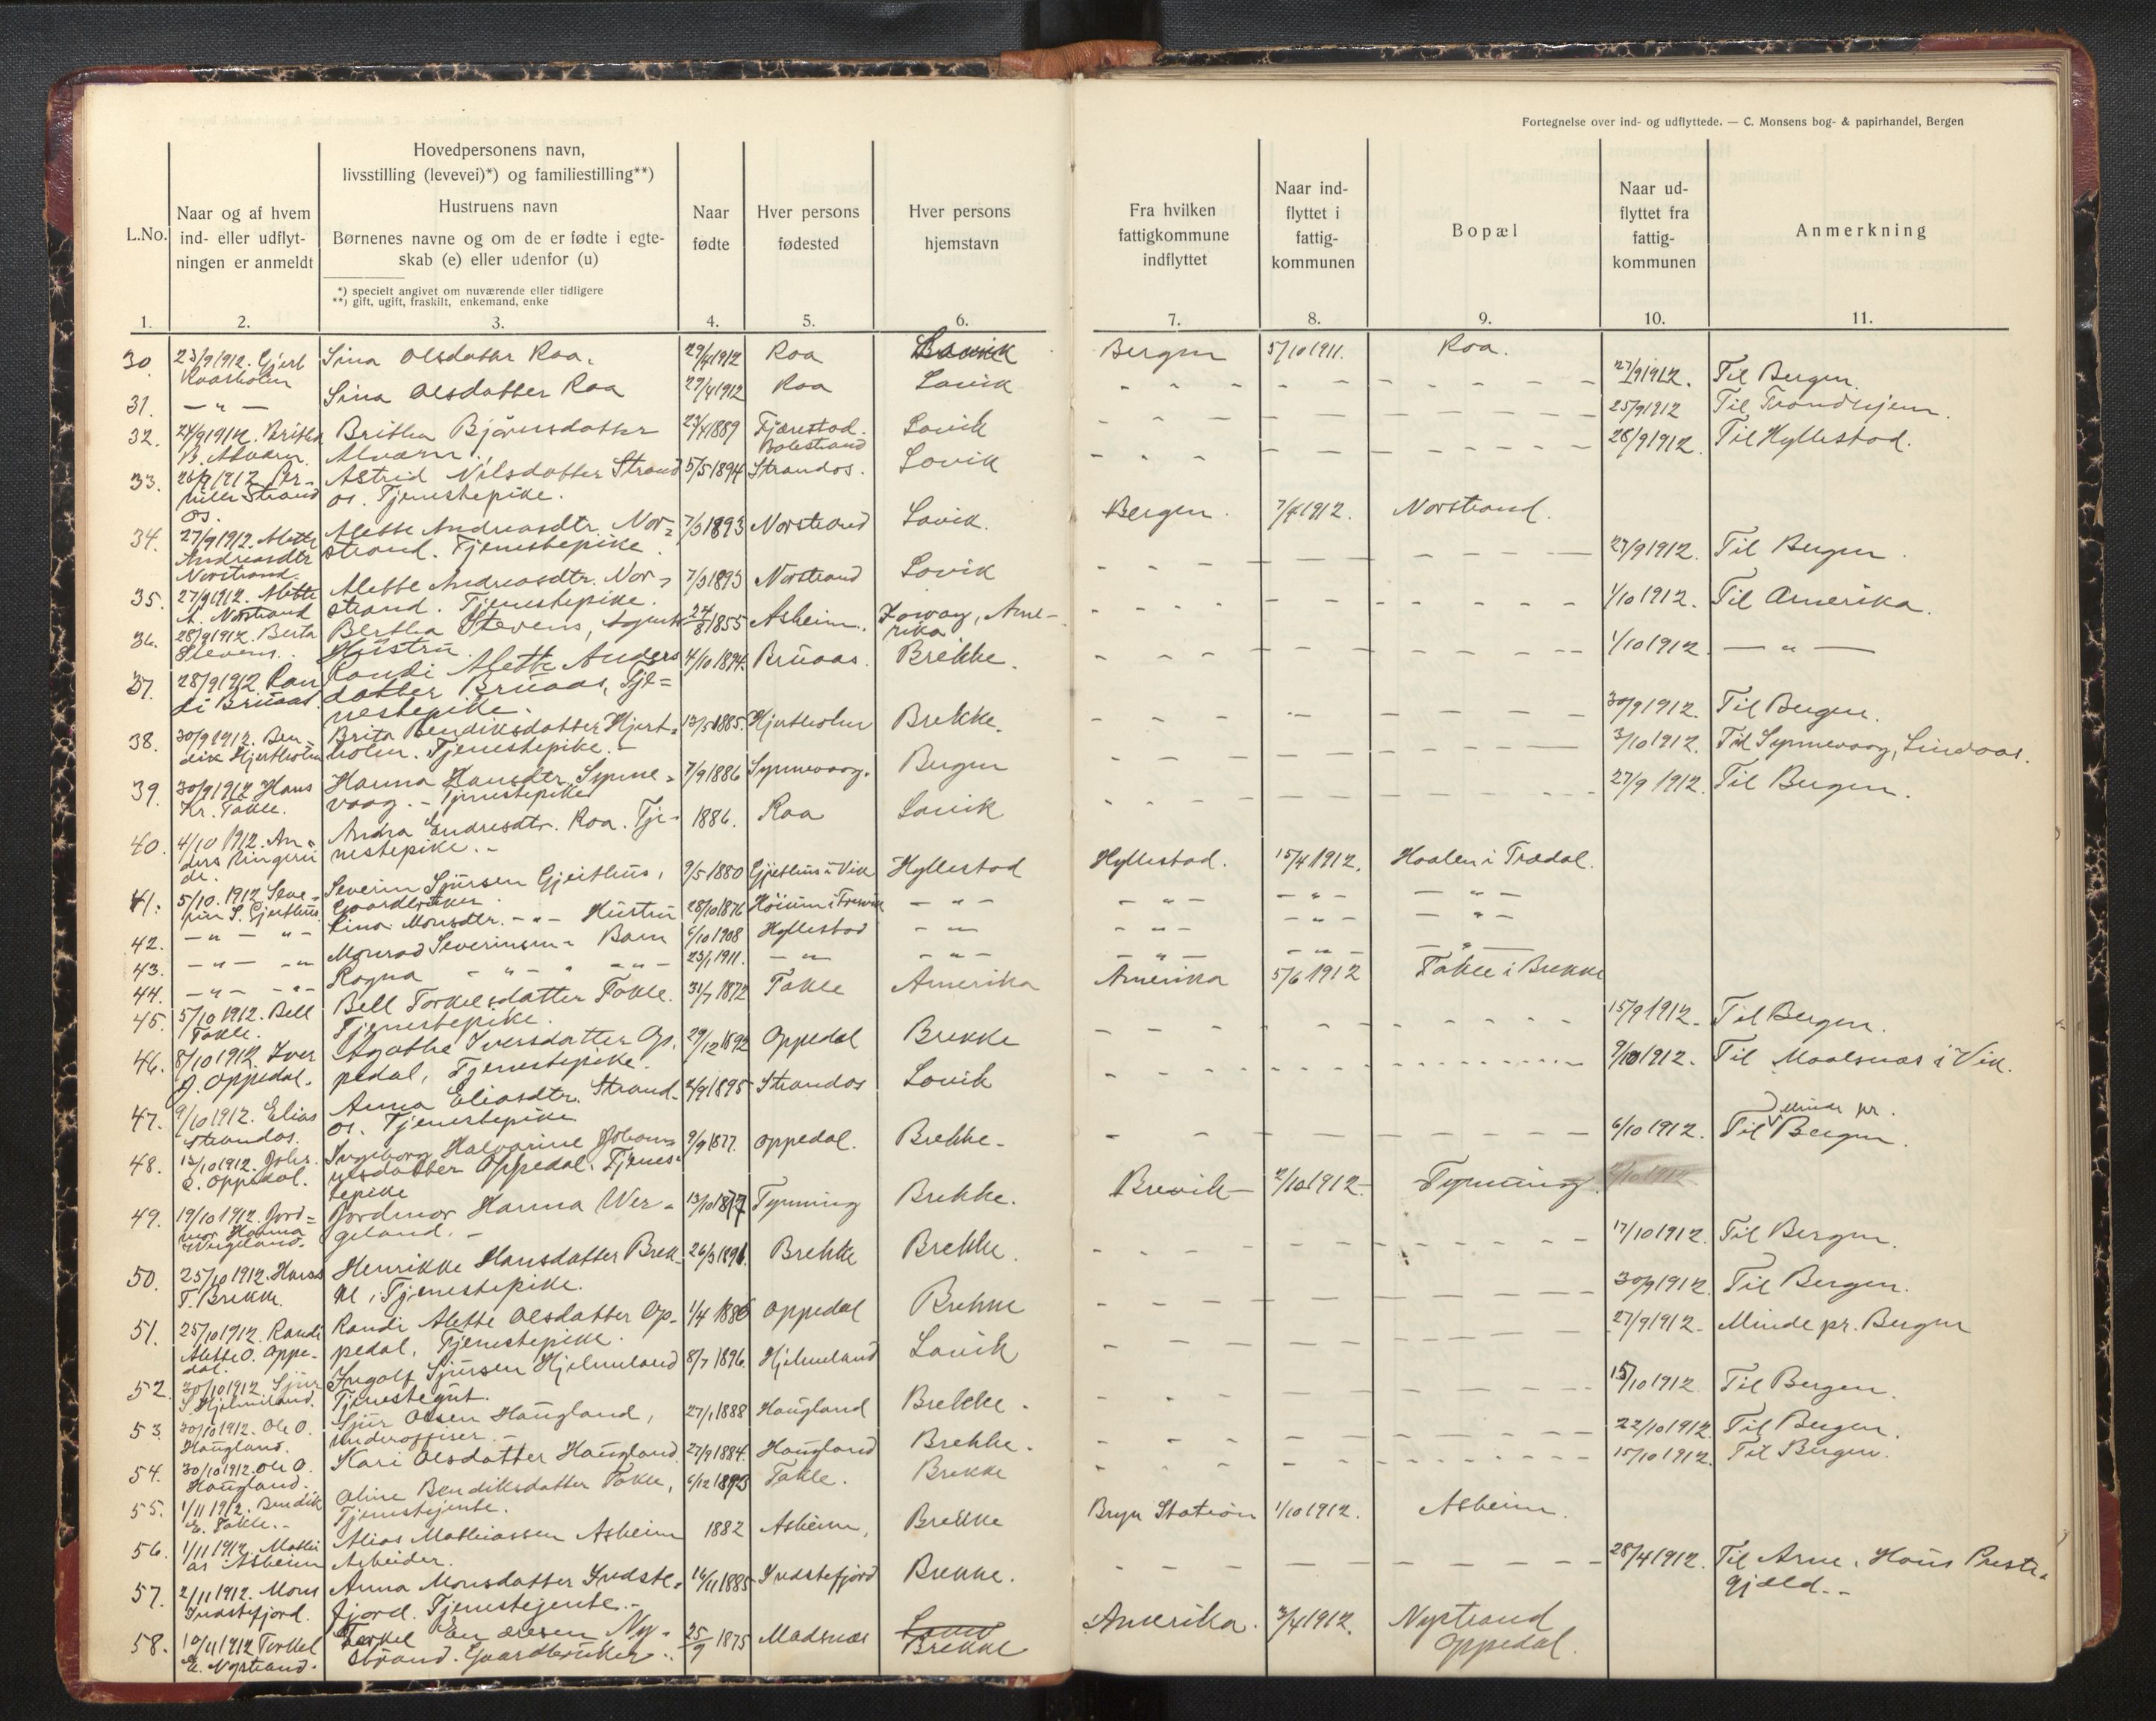 Fortegnelse over ind- og udflyttede. — C. Monsens bog- & papirhandel, Bergen
L.No.
Naar og af hvem
ind- eller udflyt-
ningen er anmeldt
Hovedpersonens navn,
livsstilling (levevei)*) og familiestilling**)
Hustruens navn
Børnenes navne og om de er fødte i egte-
skab (e) eller udenfor (u)
*) specielt angivet om nuværende eller tidligere
**) gift, ugift, fraskilt, enkemand, enke
Naar
fødte
Hver persons
fødested
Hver persons
hjemstavn
Fra hvilken
fattigkommune
indflyttet
Naar ind-
flyttet i
fattig-
kommunen
Bopæl
Naar ud-
flyttet fra
fattig-
kommunen
Anmerkning
1. 2. 3. 4. 5. 6. 7. 8. 9. 10. 11.
30. 23/9 1912. Gjert Sina Olsdatter Roa. 29/4 1912 Roa Lavik Bergen 5/10 1911. Roa.
27/9 1912. Til Bergen.
31. — " — Sina Olsdatter Roa 29/4 1912 Roa Lavik
25/9 1912 Til Trondhjem.
32. 24/9 1912. Britha Britha Björnsdatter 23/4 1889 Lavik
B. Alværn. Alværn. Balestrand
28/9 1912. Til Hyllestad.
33. 26/9 1912 Per- Astrid Nilsdatter Strand 5/5 1894 Strandos. Lavik
nille Strand os. Tjenestepike.
os.
34. 27/9 1912. Alette Alette Andreasdtr. Nor= 7/3 1893 Norstrand Lavik. Bergen. 7/4 1912. Norstrand.
Andreasdtr strand. Tjenestepike.
Norstrand.
35. 27/9 1912. Alette Alette Andreasdtr. Nor= 7/3 1893 Norstrand Lavik 27/9 1912. Til Bergen.
A. Norstrand strand. Tjenestepike.
36. 28/9 1912. Berta Bertha Stevens, 24/8 1855 Asheim. Ame- 1/10 1912. Til Amerika.
Stevens. Hustru. rika
37. 28/9 1912 Ran Randi Alette Anders 4/10 1894. Bruaas. Brekke. 1/10 1912 — " —
di Bruaas. datter Bruaas, Tje=
nestepike.
38. 30/9 1912. Ben- Brita Bendiksdatter Hjert= 13/5 1885. Hjertholm Brekke. 30/9 1912. Til Bergen.
dik Hjertholm holm. Tjenestepike.
39. 30/9 1912 Hans Hanna Hansdtr. Synne= 7/9 1886 Synnevaag. Bergen 3/10 1912. Til Synnevaag, Lindaas.
Kr. Takle. vaag. Tjenestepike
40. 4/10 1912. An- Endresdtr. Roa. Tje- 1886. Roa Lavik 27/9 1912 Til Bergen.
ders nestepike.
41. 5/10. 1912 Seve- Severin Sjursen Gjeithus, 9/5 1880 Gjeithus i Vik Hyllestad Hyllestad. 15/4 1912. Haalen i Trædal.
rin S. Gjeithus. Gaardbruker
42. — " — " — Lina Monsdtr. — " — Hustru 28/10 1876 — " — — " — — " — — " —
43. — " — — " Monrad Severinsen " Barn 6/10 1908 Hyllestad — " — — " — — " — — " —
44. — " — — " — Ragna — " — " — " — 23/1 1911. — " — — " — — " — — " — — " —
45. 5/10 1912. Bell Bell Torkelsdatter Takle. 31/7 1872 Takle Amerika Amerika 5/6 1912 Takle i Brekke
Takle. Tjenestepike.
46. 8/10 1912. Iver Agathe Iversdatter Op. 29/12 1892 Oppedal Brekke 15/9 1912. Til Bergen.
J. Oppedal. pedal, Tjenestepike.
47. 9/10 1912. Elias Anna Eliasdtr. Strand- 2/9 1895 Strandos Lavik 9/10 1912. Til Maalsnæs i Vik.
Strandos. os. Tjenestepike
48. 12/10 1912. Johs. Ingeborg Halvarine Johan= 9/9 1877. Oppedal. Brekke. 6/10 1912. Til Minde pr. Bergen.
Oppedal. nesdatter Oppedal. Tjenes-
tepike
49. 19/10 1912. Jord= Jordmor Hanna Wer- 13/10 1877 Tynning Brekke. Brevik 2/10 1912. Tynning
mor Hanna geland.
Wergeland.
50. 25/10 1912. Hans Henrikke Hansdatter Brek- 26/3 1891. Brekke Brekke. 17/10 1912. Til Bergen.
T. Brekke. ke, Tjenestepike.
51. 25/10 1912. Randi Randi Alette Olsdatter Op- 1/4 1886 Oppedal Brekke 30/9 1912. Til Bergen.
Alette O. Oppe- pedal, Tjenestepike.
dal.
52. 30/10 1912. Sjur Ingolf Sjursen Hjelmeland 8/7 1896. Hjelmeland Lavik 27/9 1912. Minde pr. Bergen
S. Hjelmeland. Tjenestegut.
53. 30/10 1912. Ole O. Sjur Olsen Haugland, 27/1 1888 Haugland Brekke. 15/10 1912 Til Bergen.
Haugland. Underoffiser.
54. 30/10 1912. Ole O. Kari Olsdatter Haugland. 27/9 1884. Haugland Brekke. 22/10 1912. Til Bergen.
Haugland.
55. 1/11 1912. Bendik Oline Bendiksdatter Takle, 6/12 1893 Takle. Brekke 15/10 1912. Til Bergen.
E. Takle. Tjenestejente.
56. 1/11 1912. Mathi Elias Mathiassen Asheim 1882 Asheim, Brekke Bryn Station 1/10 1912. Asheim.
as Asheim Arbeider.
57. 2/11 1912. Mons Anna Monsdatter Indste- 14/11 1885 Indstefjord Brekke. 28/4 1912. Til Arne, Haus Preste-
Indstefjord. fjord. Tjenestejente. gjæld.
58. 10/11 1912 Torkel Torkel Ny- 25/9 1875 Madsnæs Lavik Amerika. 3/4 1912. Nystrand
E. Nystrand. strand. Gaardbruker. Brekke Oppedal.